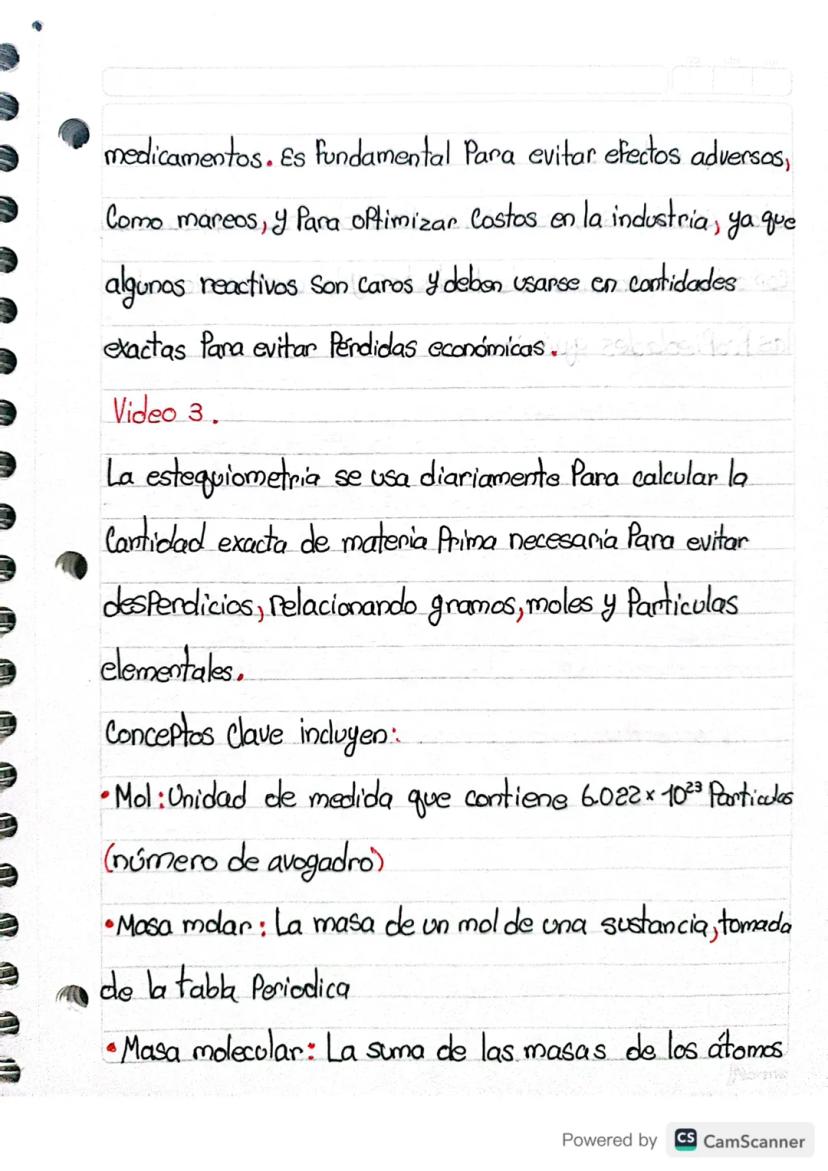 medicamentos. Es fundamental Para evitar efectos adversos,
Como mareos, y Para optimizar Costos en la industria, ya que
algunos reactivos Son caros y deben usarse en cantidades
exactas Para evitar Pérdidas económicas.
Video 3.
La estequiometria se usa diariamente Para calcular la
Cantidad exacta de materia Prima necesaria Para evitar
desPerdicios, relacionando gramos, moles y Particulas
elementales.
Conceptos Clave incluyen:
•Mol: Unidad de medida que contiene 6.022 x 10²³ Particulas
(número de avogadro)
•Masa molar: La masa de un mol de una sustancia, tomada
de la tabla Periodica
•Masa molecular: La suma de las masas de los átomos
Powered by CS CamScanner